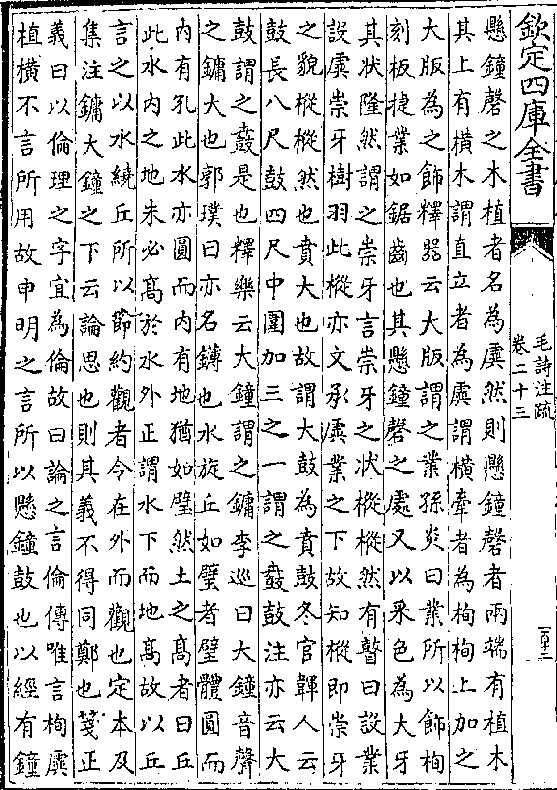 欽定四庫全書
毛詩注疏
卷二十三
懸鐘磬之木植者名為虡然則懸鐘磬者兩端有植木
其上有橫木謂直立者為虡謂橫牽者為栒栒上加之
大版為之飾釋器云大版謂之業孫炎曰業所以飾栒
刻板捷業如鋸齒也其懸鐘磬之處又以采色為大牙
其狀隆然謂之崇牙言崇牙之狀樅樅然有瞽曰設業
設虡崇牙樹羽此樅亦文承虡業之下故知樅即崇牙
之貌樅樅然也賁大也故謂大鼓為賁鼓冬官韗人云
鼓長八尺鼓四尺中圍加三之一謂之鼖鼓注亦云大
鼓謂之鼖是也釋樂云大鐘謂之鏞李巡曰大鐘音聲
之鏞大也郭璞曰亦名鏄也水旋丘如璧者璧體圓而
内有孔此水亦圓而内有地猶如璧然土之高者曰丘
此水内之地未必高於水外正謂水下而地高故以丘
言之以水繞丘所以節約觀者令在外而觀也定本及
集注鏞大鐘之下云論思也則其義不得同鄭也箋正
義曰以倫理之字宜為倫故曰論之言倫傳唯言栒虡
植橫不言所用故申明之言所以懸鐘鼓也以經有鐘